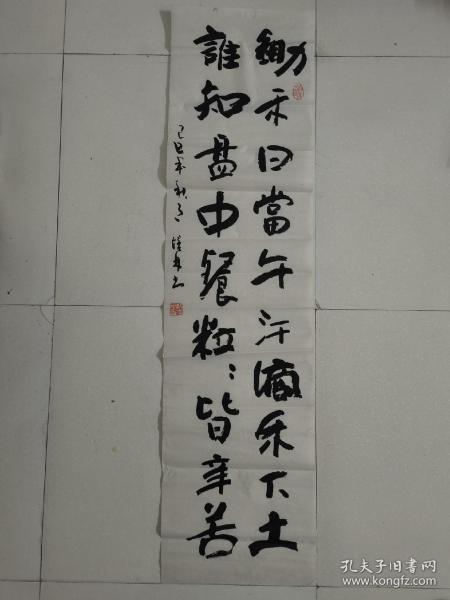 鋤禾日當午汗滴禾下土
誰知盘中餐粒〻皆辛苦
己巳年秋月
孔夫子旧书网
www.kongfz.com